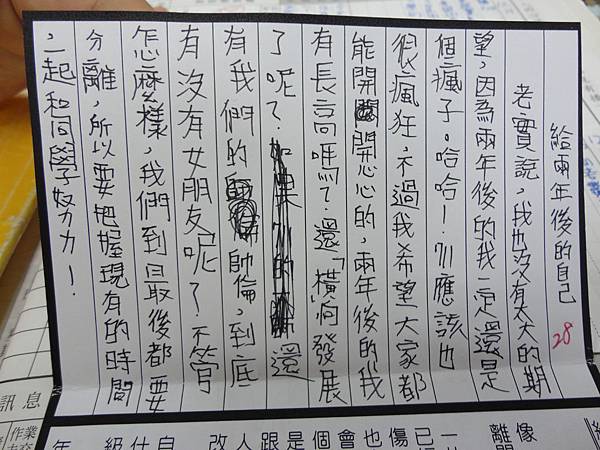 給兩年後的自己
28
老實說，我也沒有太大的期
望，因為兩年後的我一定還是
個瘋子。哈哈！川應該也
很瘋狂，不過我希望大家都
能開開心心的，兩年後的我
有長高嗎？還「橫向發展
了呢？還
有我們的帥倫，到底
有沒有女朋友呢？不管
怎麼樣，我們到最後都要
分離，所以要把握現有的時間
，一起和同學努力！
像
離
傷
也
會
個
是
跟
人
改
自
級
年
訊息